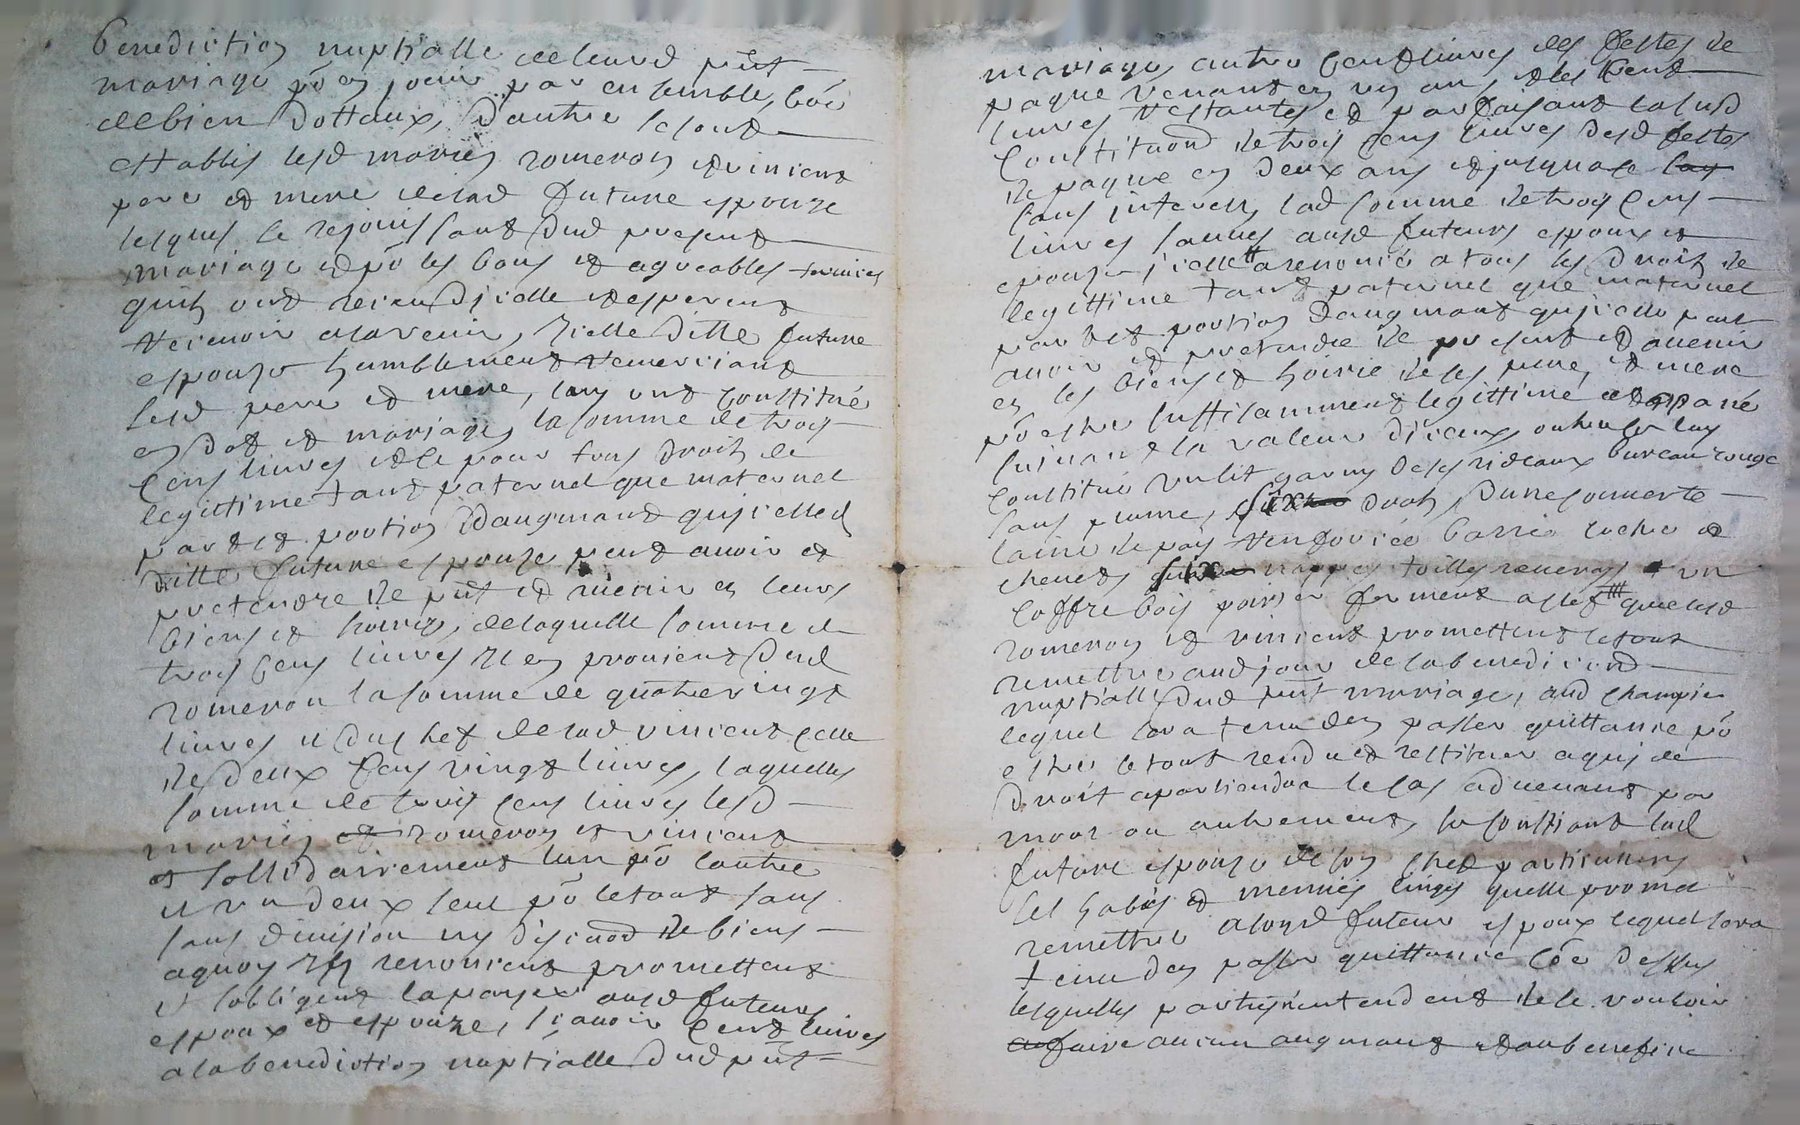 benediction nuptialle deleurd pñt
mariage põ en jouir par ensemble, cõe
de bien dottaux, d'autre se sont
establis lesd mariés romeron et vincent
pere et mere de lad future espouze
lesquels se rejouissant dud present
mariage et põ les bons et agreables services
quilz ont receu d'icelle et esperent
recevoir alavenir, Icelle ditte future
espouze humblement remerciant
sesd pere et mere, luy ont constitué
en dot et mariage, la somme de trois
cens livres et ce pour tous droitz de
legittime tant paternel que maternel
part et portion d'augmant qu'icelled
ditte future espouze peut avoir et
pretendre de pñt et avenir es leurs
biens et hoirie, de laquelle somme de
trois cens livres Il en provient dud
romeron la somme de quatre vingt
livres et du chef de lad vincent celle
de deux cens vingt livres, laquelle
somme de trois cens livres lesd
mariés et romeron et vincent
et sollidairement lun põ lautre
et un deux seul põ le tout sans
sans division ny discuõn de biens
aquoy Ilz renoncent promettent
et sobligent la payer ausd futeurs
espoux et espouze, sçavoir cent livres
ala benediction nuptialle dud pñt
mariage, autre cent livres des festes de
paque venant en un an, et les cent
livres restantes et parfaisant la susd
constituõn de trois cens livres desd festes
de paque en deux ans et jusqua ce luy
sans interest, lad somme de trois cens
livres sauves ausd futeurs espoux et
epouze icelle a renoncé a tous les droitz de
legittime tant paternel que maternel
part et portion d'augmant qu'icelle peut
avoir et pretendre de present et avenir
es les biens et hoirie de ses pere, et mere
põ estre suffisamment legittimé et apané
suivant la valeur d'iceux, outre ce luy
constitué un lit garny de ses rideaux bureau rouge
sans plume, six draps, d'une couverte
laine de pays
chenets six nappes toille
coffre bois fermant a clef que lesd
romeron et vincent promettent le tout
remettre aud jour de la benedicõn
nuptialle dud pñt mariage, aud champie
lequel sera tenu den passer quittance põ
estre le tout rendu et restitué a qui de
droit apartiendra le cas advenant par
mort ou autrement, se constiant lad
future espouze de son chef particulliers
ses habits et menus linges quelle promet
remettre a sond futeur espoux lequel sera
tenu den passer quittance cõe dessus
lesquelles parties entendent de ce vouloir
faire aucun augmant et au benefice